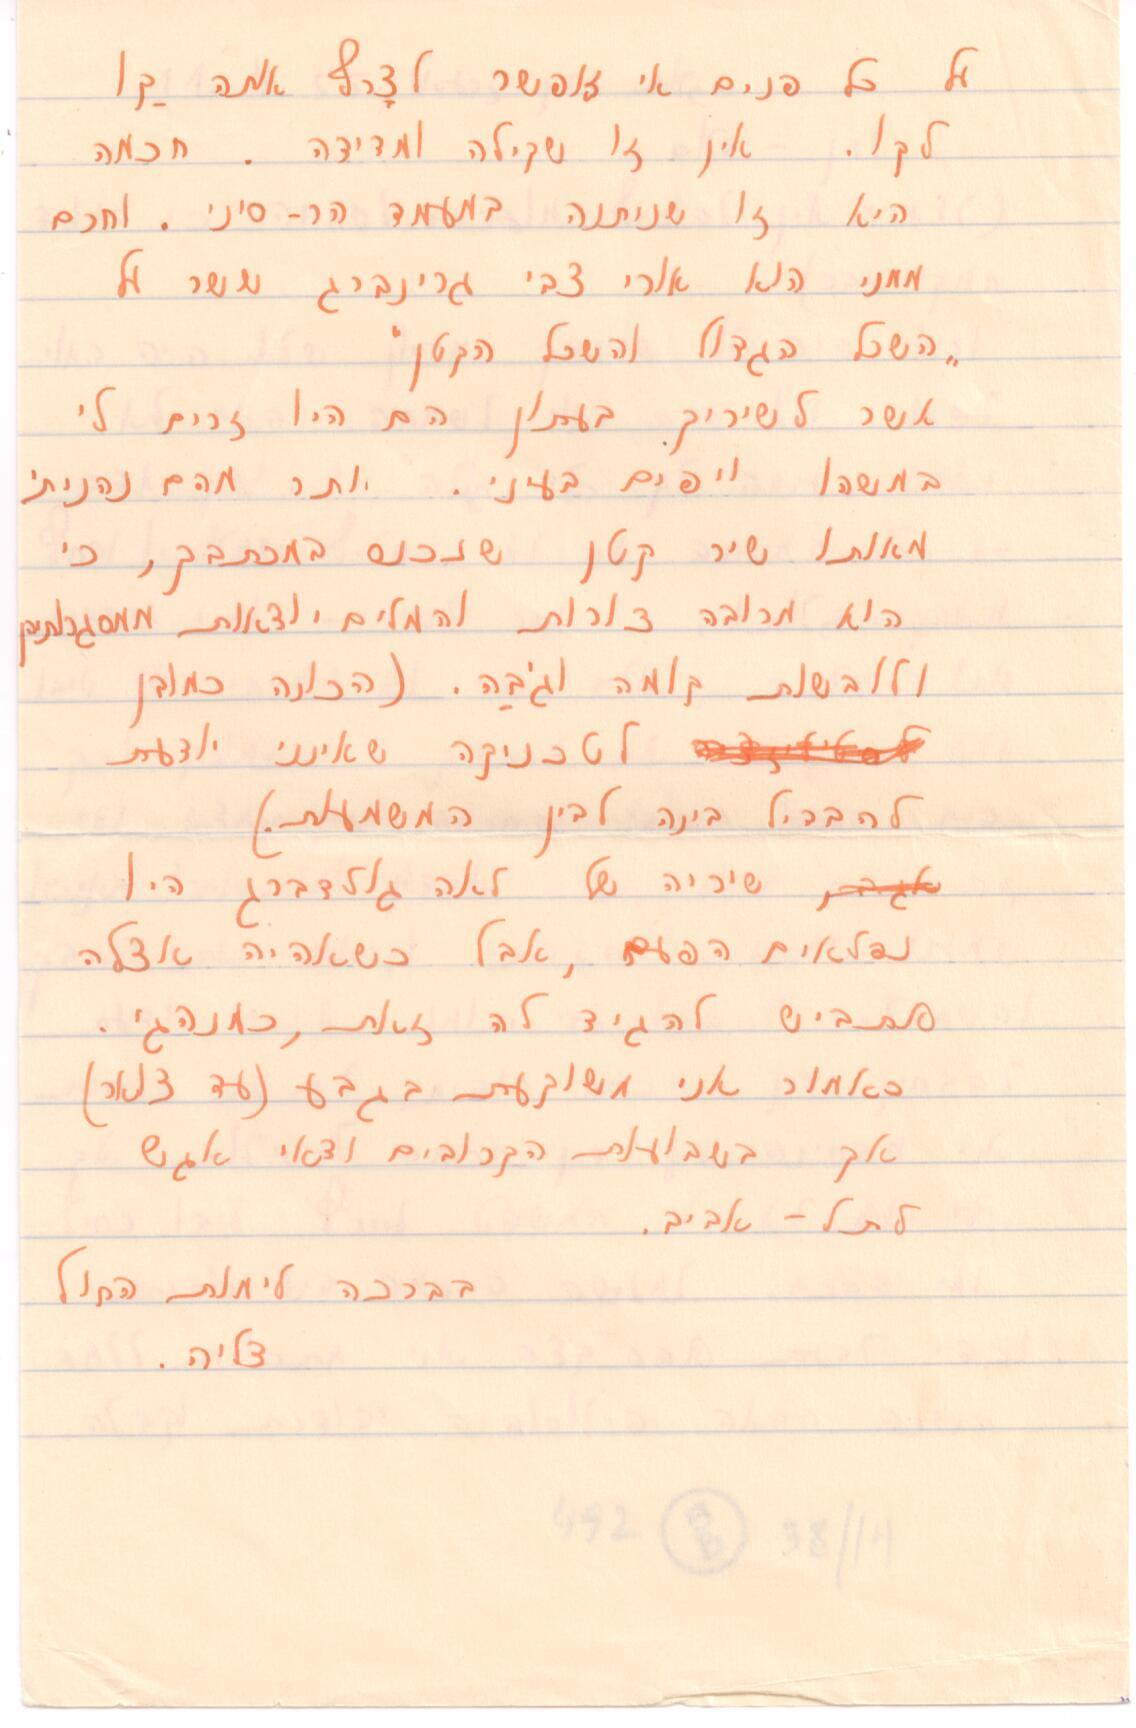 על כל פנים אי אפשר לצָרף אמה קַו
לקו. אין זו שקילה ומדידה. חכמה
היא זו שניתנה במעמד הר-סיני. וחכם
ממני הוא אורי צבי גרינברג ששר על
"השכל הגדול והשכל הקטן"
אשר לשיריך בעתון הם היו זרים לי
במשהו ויפים בעיני. יותר מהם נהניתי
מאותו שיר קטן שנכנס במכתבך, כי
הוא מרובה צורות והמלים יוצאות ממסגרותיהן
ולובשות קומה וגֹבַה. (הכונה כמובן
לטכניקה שאינני יודעת
להבדיל בינה לבין המשמעות.)
אגב, שיריה של לאה גולדברג היו
נפלאים הפעם, אבל כשאהיה אצלה
אתבייש להגיד לה זאת, כמנהגי.
כאמור אני משוקעת בגבע (עד צואר)
אך בשבועות הקרובים ודאי אגש
לתל-אביב.
בברכה לימות החול
צליה.
38/14 492